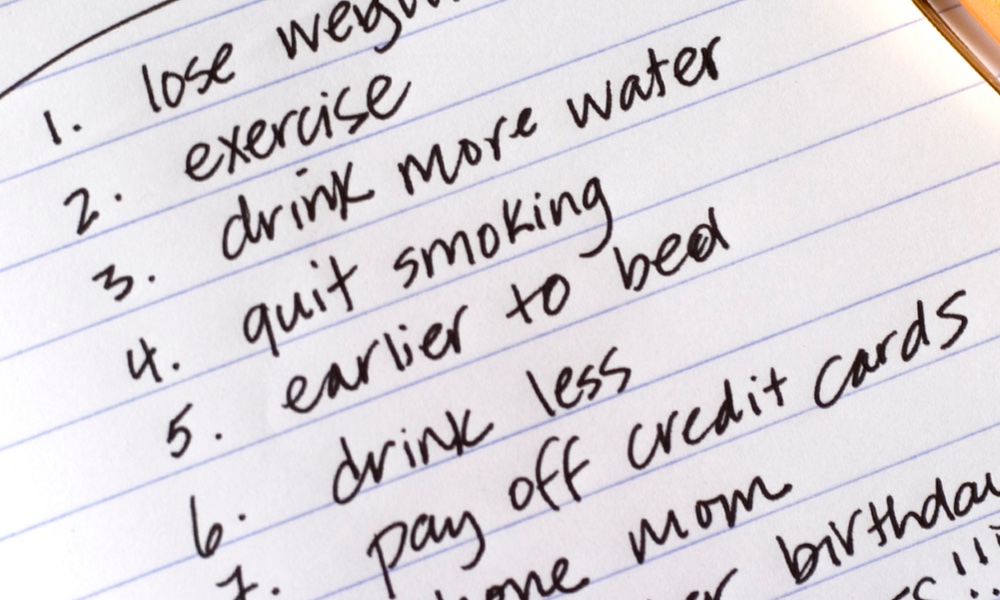 1. lose
2. exercise
3. drink more water
4. quit smoking
5. earlier to bed
6. drink less
7. pay off credit cards
mom
birthday